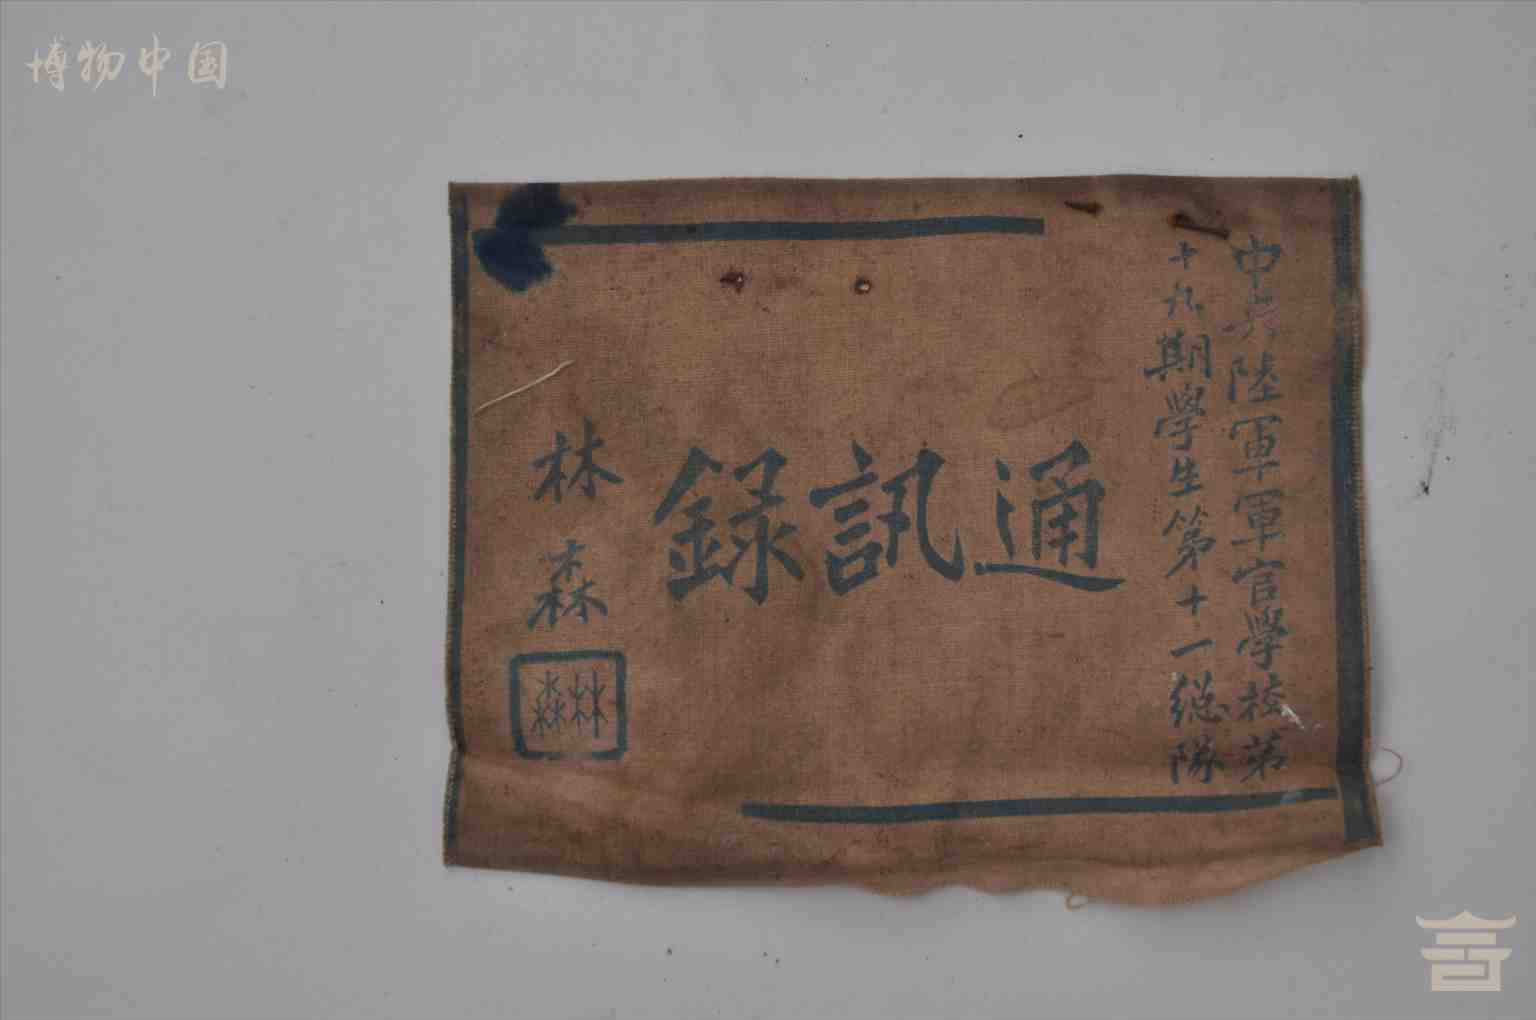 博物中国
中央陸軍軍官學校第
十九期學生第十一總隊
通訊録
林森
林森